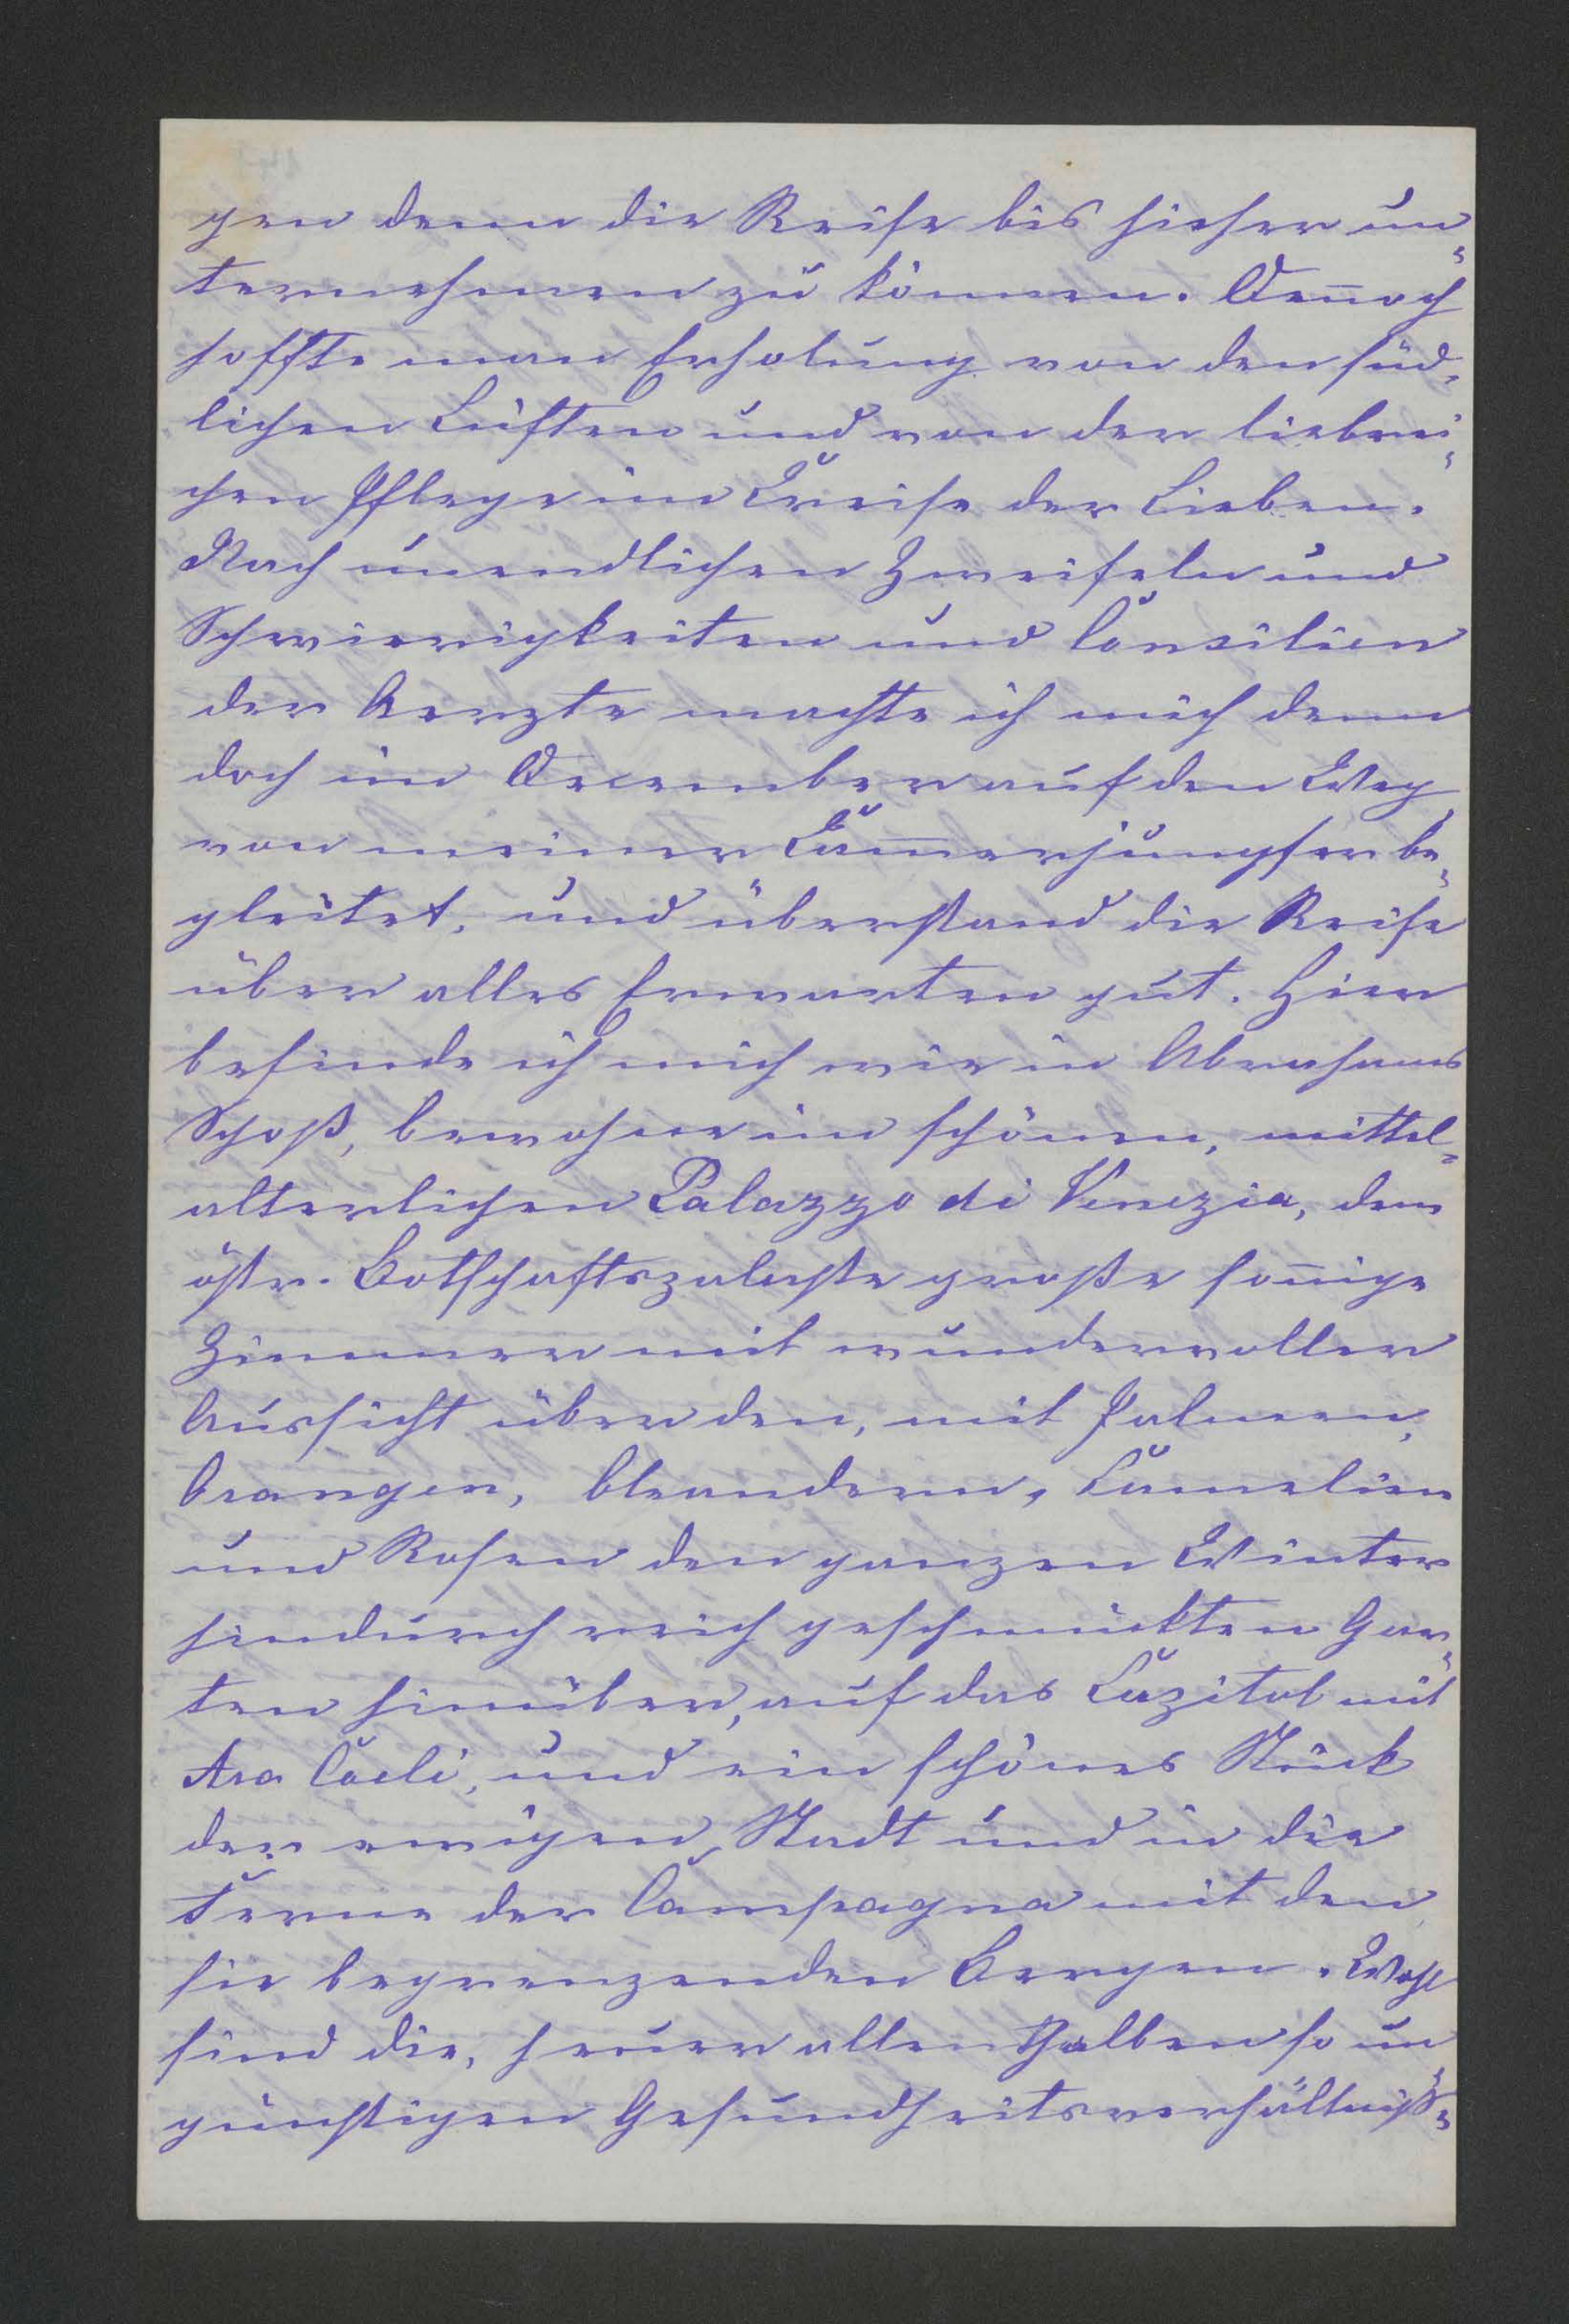 gen denn die Reise bis hieher un=
ternehmen zu können. Deñoch
hoffte man Erholung von den süd=
lichen Lüften und von der liebrei=
chen Pflege im Kreise der Lieben.
Nach unendlichen Zweifeln und
Schwierigkeiten und Consilien
der Aerzte machte ich mich denn
doch im December auf den Weg
von meiner Kam̄erjungfer be=
gleitet, und überstand die Reise
über alles Erwarten gut. Hier
befinde ich mich wie in Abrahams
Schoß, bewohne im schönen, mittel=
alterlichen Palazzo di Venezia, dem
östr. Botschaftspalaste große soñige
Zimmer mit wundervoller
Aussicht über den, mit Palmen,
Orangen, Oleandern, Kamelien
und Rosen den ganzen Winter
hindurch reich geschmückten Gar=
ten hinüber, auf das Kapitol mit
Ara Coeli, und ein schönes Stück
der ewigen Stadt und in die
Ferne der Campagna mit den
sie begrenzenden Bergen. Wohl
sind die, heuer allenthalben so un=
günstigen Gesundheitsverhältniß=